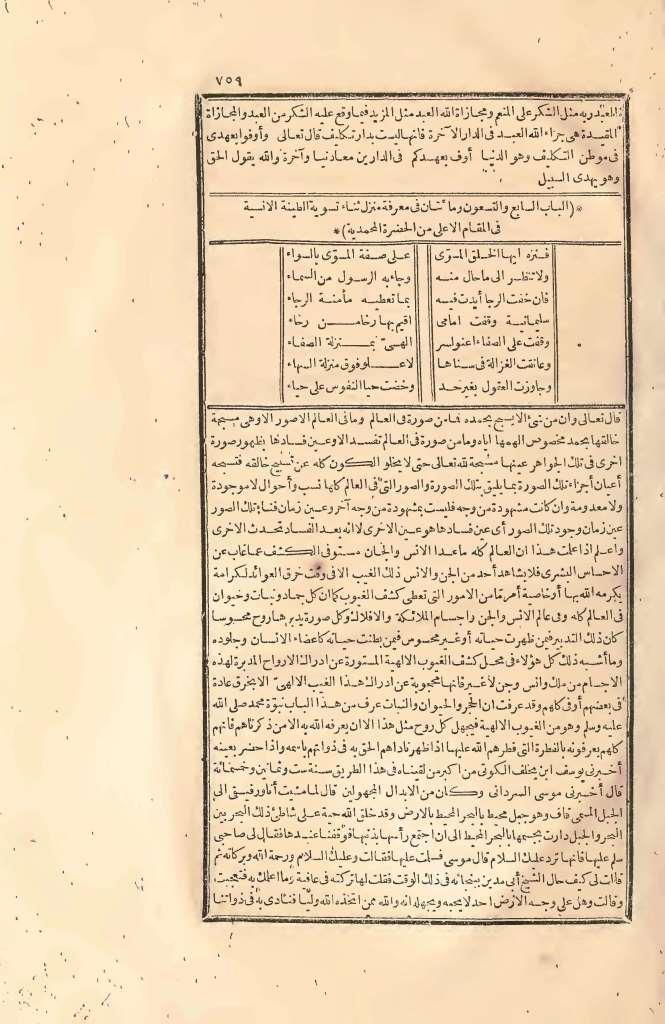 ٧٥٩
المعتدر به مثل الشكر على المنعم ومجازاة الله العبد مثل المزيد فيما وقع عليه الشكر من العبد والمجازاة
المقيدة هى جزاء الله العبد فى الدار الآخرة فانها ليست بدار تكليف قال تعالى وأوفوا بعهدى
فى موطن التكليف وهو الدنيا أوف بعهدكم فى الدارين معا دنيا وآخرة والله يقول الحق
وهو يهدى السبيل
* (الباب السابع والتسعون ومائتان فى معرفة منزل ثناء تسوية الطينة الانسية
فى المقام الاعلى من الحضرة المحمدية) *
فنزه ايها الخلق المسوّى على صفة المسوّى بالسواء
ولا تنظر الى ما حال منه وجاء به الرسول من السماء
فان خفت الرجا أيدت فيه بما تعطيه مأمنة الرجاء
سليمانية وقفت امامى اقيم بها رخا من رخاء
وقفت على الصفاء اعنو لسر الهىّ بمنزلة الصفاء
وعانقت الغزالة فى سناها لاعلو فوق منزلة البهاء
وجاوزت العقول بغير حد وخضت حيا النفوس على حياء
قال تعالى وان من شئ الا يسبح بحمده فما من صورة فى العالم وما فى العالم الا صور الا وهى مسبحة
خالقها بحمد مخصوص الهمها اياه وما من صورة فى العالم تفسد الا وعين فسادها بظهور صورة
اخرى فى تلك الجواهر عينها مسبحة لله تعالى حتى لا يخلو الكون كله عن تسبيح خالقه فتسبحه
أعيان أجزاء تلك الصورة بما يليق بتلك الصورة والصور التى فى العالم كلها نسب وأحوال لا موجودة
ولا معدومة وان كانت مشهودة من وجه فليست بمشهودة من وجه آخر وعين زمان فناء تلك الصور
عين زمان وجود تلك الصور أى عين فسادها هو عين الاخرى لا انه بعد الفساد تحدث الاخرى
واعلم اذا علت هذا ان العالم كله ما عدا الانس والجان مستوفى الكشف عما غاب عن
الاحساس البشرى فلا يشاهد أحد من الجن والانس ذلك الغيب الا فى وقت خرق العوائد لكرامة
يكرمه الله بها أو خاصية أمر ما من الامور التى تعطى كشف الغيوب كما ان كل جماد ونبات وحيوان
فى العالم كله وفى عالم الانس والجن واجسام الملائكة والافلاك وكل صورة يدبرها روح محسوسا
كان ذلك التدبير فيمن ظهرت حياته أو غير محسوس فيمن بطنت حياته كاعضاء الانسان وجلوده
وما أشبه ذلك كل هؤلاء فى محل كشف الغيوب الالهية المستورة عن ادراك الارواح المدبرة لهذه
الاجسام من ملك وانس وجن لا غير فانها محجوبة عن ادراك هذا الغيب الالهىّ الا بخرق عادة
فى بعضهم أو فى كلهم وقد عرفت ان الحجر والحيوان والنبات عرف من هذا الباب نبوّة محمد صلى الله
عليه وسلم وهو من الغيوب الالهية فيجهل كل روح مثل هذا الا ان يعرفه الله به الا من ذكرناهم فانهم
كلهم يعرفونه بالفطرة التى فطرهم الله عليها اذا ظهر ناداهم الحق به فى ذواتهم باسمه واذا حضر بعينه
أخبرنى يوسف ابن يخلف الكوتى من اكبر من لقيناه فى هذا الطريق سنة ست وثمانين وخمسمائة
قال أخبرنى موسى السدرانى وكان من الابدال المحمولين قال لما مشيت أنا ورفيقى الى
الجبل المسمى قاف وهو جبل محيط بالبحر المحيط بالارض وقد خلق الله حية على شاطئ ذلك البحر بين
البحر والجبل دارت بجسمها بالبحر المحيط الى أن اجتمع رأسها بذنبها فوقفنا عندها فقال لى صاحبى
سلم عليها فانها ترد عليك السلام قال موسى فسلمت عليها فقالت وعليك السلام ورحمة الله وبركاته ثم
قالت لى كيف حال الشيخ أبى مدين ببجاية فى ذلك الوقت فقلت لها تركته فى عافية وما اعلمك به فتعجبت
وقالت وهل على وجه الارض احد لا يحبه ويجهله انه والله ممن اتخذه الله وليا فنادى به فى ذواتنا